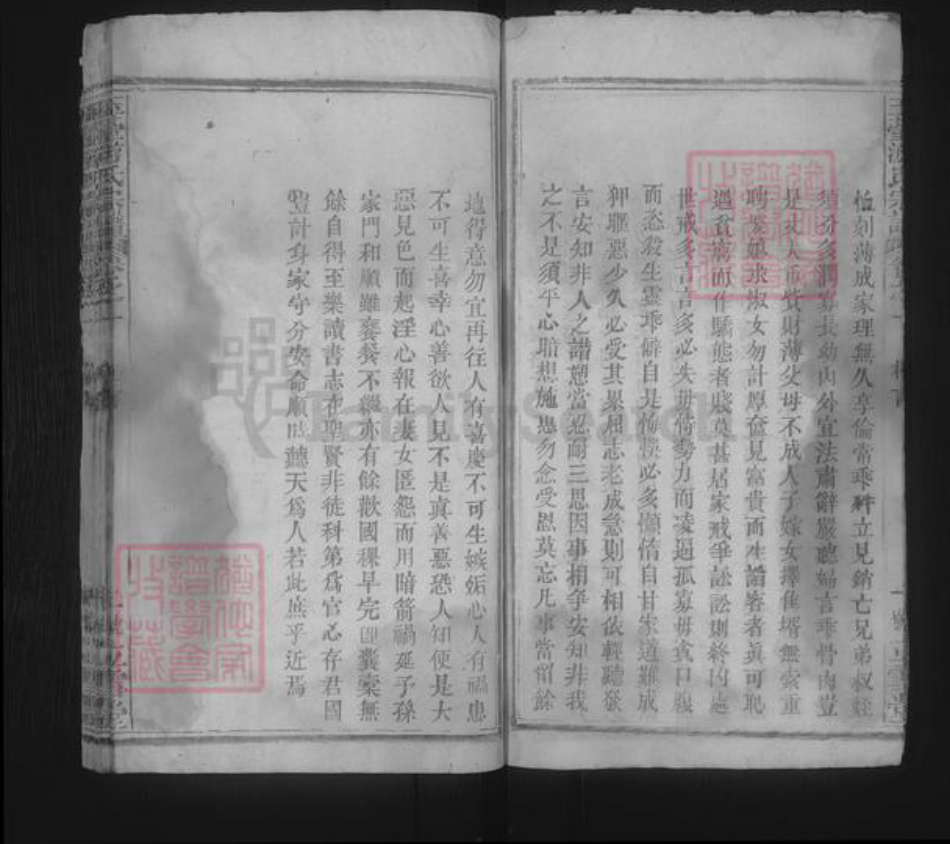 恰刻薄成家理無久享倫常乖舛立見銷亡兄弟叔姪
須分多潤寡長幼內外宜法肅辭嚴聽婦言乖骨肉豈
是丈夫重貲財薄父母不成人子嫁女擇佳壻無索重
聘娶媳求淑女勿計厚奩見富貴而生諂容者眞可恥
遇貧窮而作驕態者賤莫甚居家戒爭訟訟則終凶處
世戒多言言多必失毋倚勢力而凌逼孤寡毋貪口腹
而恣殺生靈乖僻自是悔悞必多懶惰自甘家道難成
狎暱惡少久必受其累屈志老成急則可相依輕聽發
言安知非人之譖愬當忍耐三思因事相爭安知非我
之不是須平心暗想施恩勿念受恩莫忘凡事當留餘
地得意勿宜再往人有喜慶不可生嫉妬心人有禍患
不可生喜幸心善欲人見不是眞善惡恐人知便是大
惡見色而起淫心報在妻女匿怨而用暗箭禍延子孫
家門和順雖饔飧不繼亦有餘歡國稞早完卽囊橐無
餘自得至樂讀書志在聖賢非徒科第爲官心存君國
豈計身家守分安命順時聽天爲人若此庶乎近焉
FamilySearch